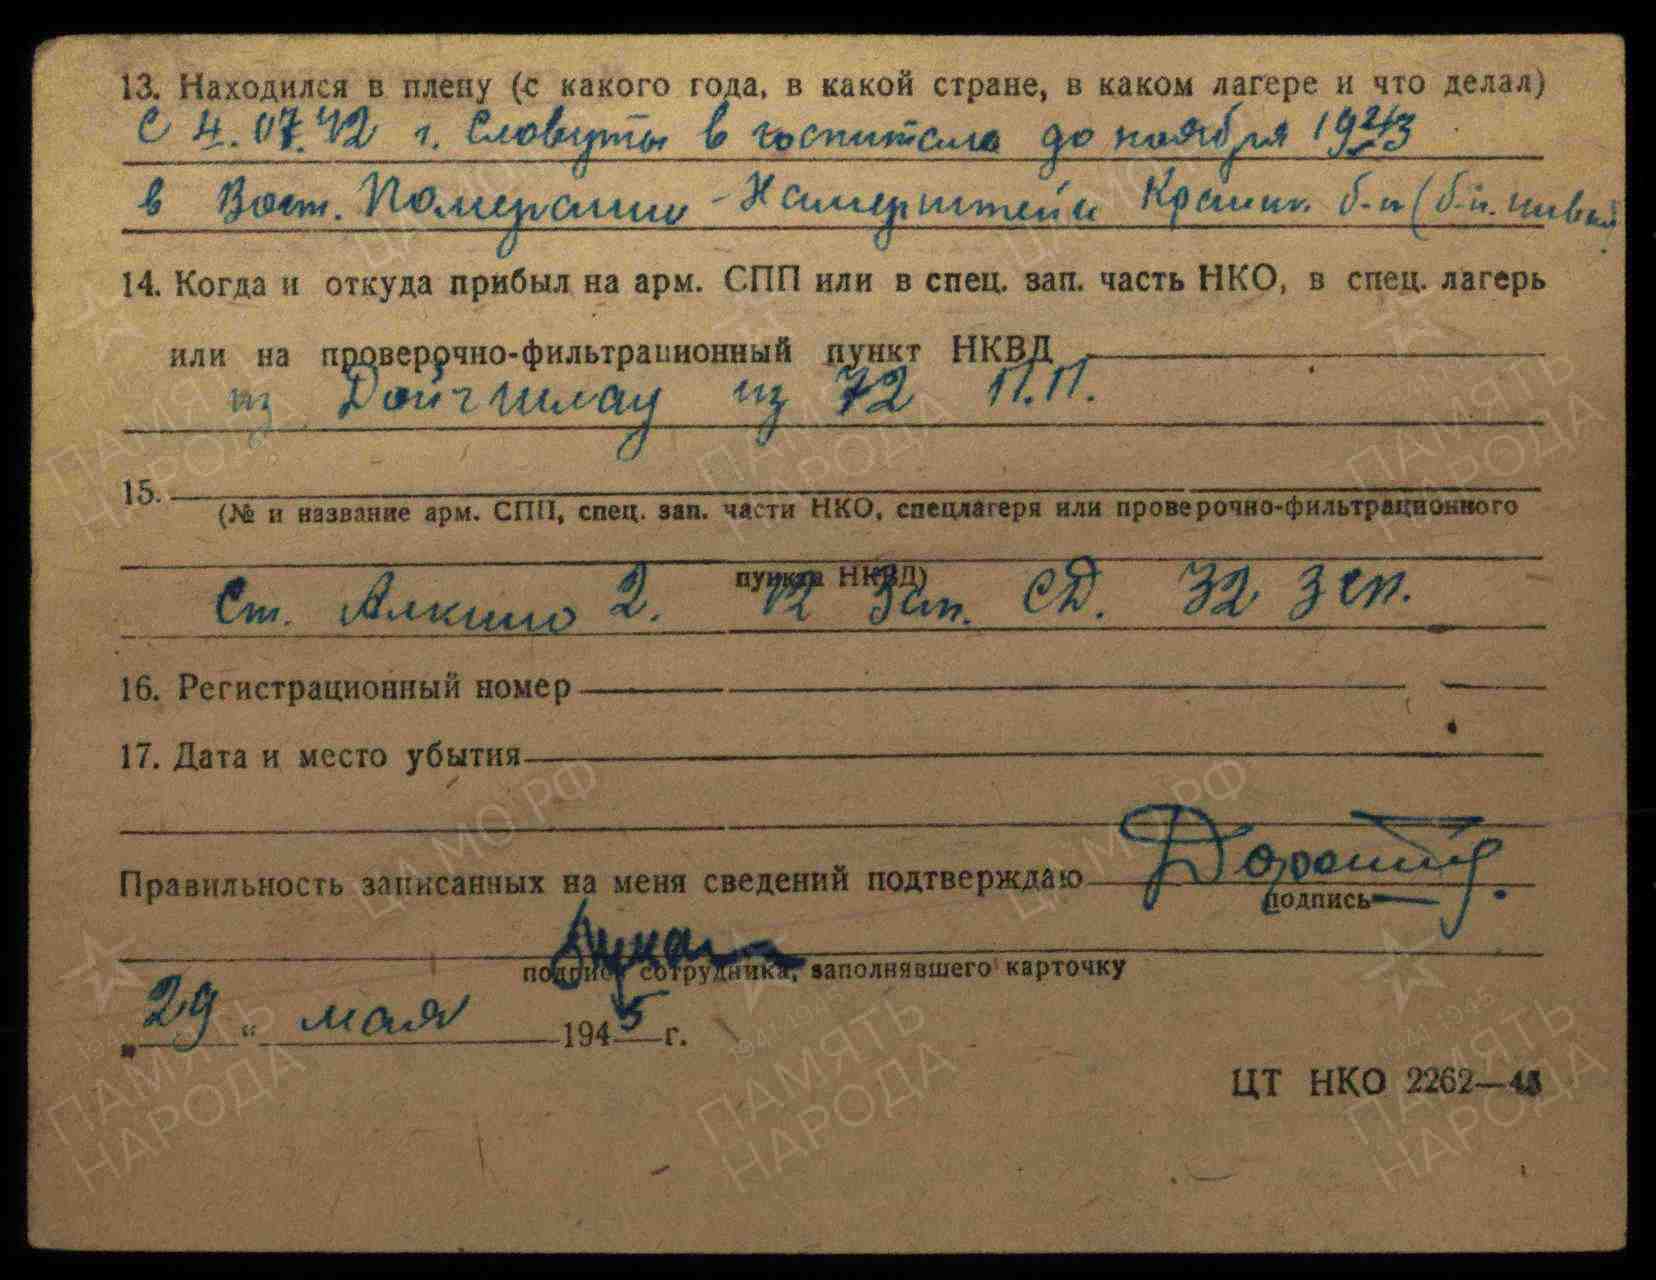 13. Находился в плену (с какого года, в какой стране, в каком лагере и что делал)
С 4.07.42 г. Славуты в госпитале до ноября 1943
в Вост. Померании - Хамерштейн б-н (б-н.
14. Когда и откуда прибыл на арм. СПП или в спец. зап. часть НКО, в спец. лагерь
или на проверочно-фильтрационный пункт НКВД
из Дойч шлау из 72 П.П.
15.
(№ и название арм. СПП, спец. зап. части НКО, спецлагеря или проверочно-фильтрационного
пункта НКВД)
Ст. Алкино 2. 12 Зап. СД. 32 Зсп.
16. Регистрационный номер
17. Дата и место убытия
Правильность записанных на меня сведений подтверждаю
подпись
подпись сотрудника, заполнявшего карточку
„29“ мая 1945 г.
ЦТ НКО 2262—45
ПАМЯТЬ НАРОДА
1941-1945
ЦАМО.РФ